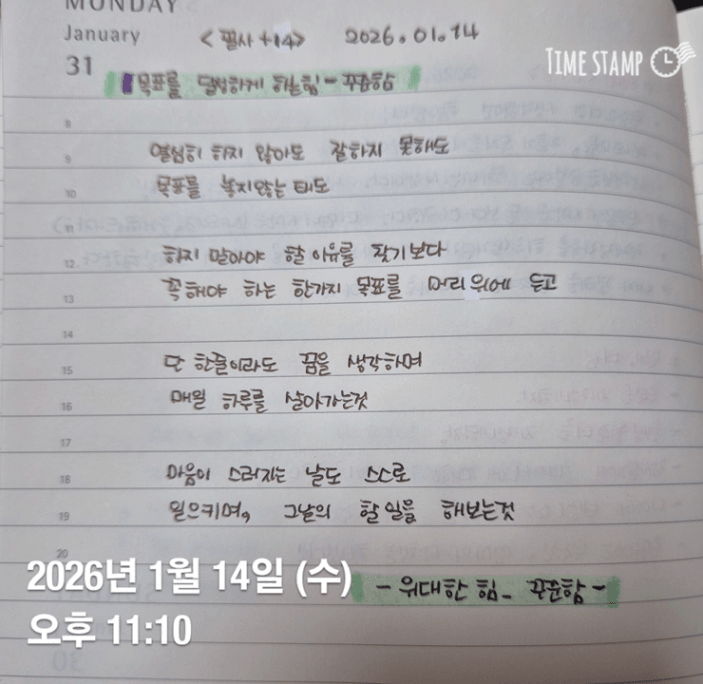 MONDAY
January <필사 +14> 2026.01.14
31
TIME STAMP
목표를 달성하게 하는힘 - 꾸준함
8
9 열심히 하지 않아도 잘하지 못해도
10 목표를 놓지않는 태도
11
12 하지 말아야 할 이유를 찾기보다
13 꼭 해야 하는 한가지 목표를 머리 위에 두고
14
15 단 한줄이라도 꿈을 생각하며
16 매일 하루를 살아가는것
17
18 마음이 스러지는 날도 스스로
19 일으키며, 그날의 할 일을 해보는것
20
- 위대한 힘 - 꾸준함 -
2026년 1월 14일 (수)
오후 11:10
30